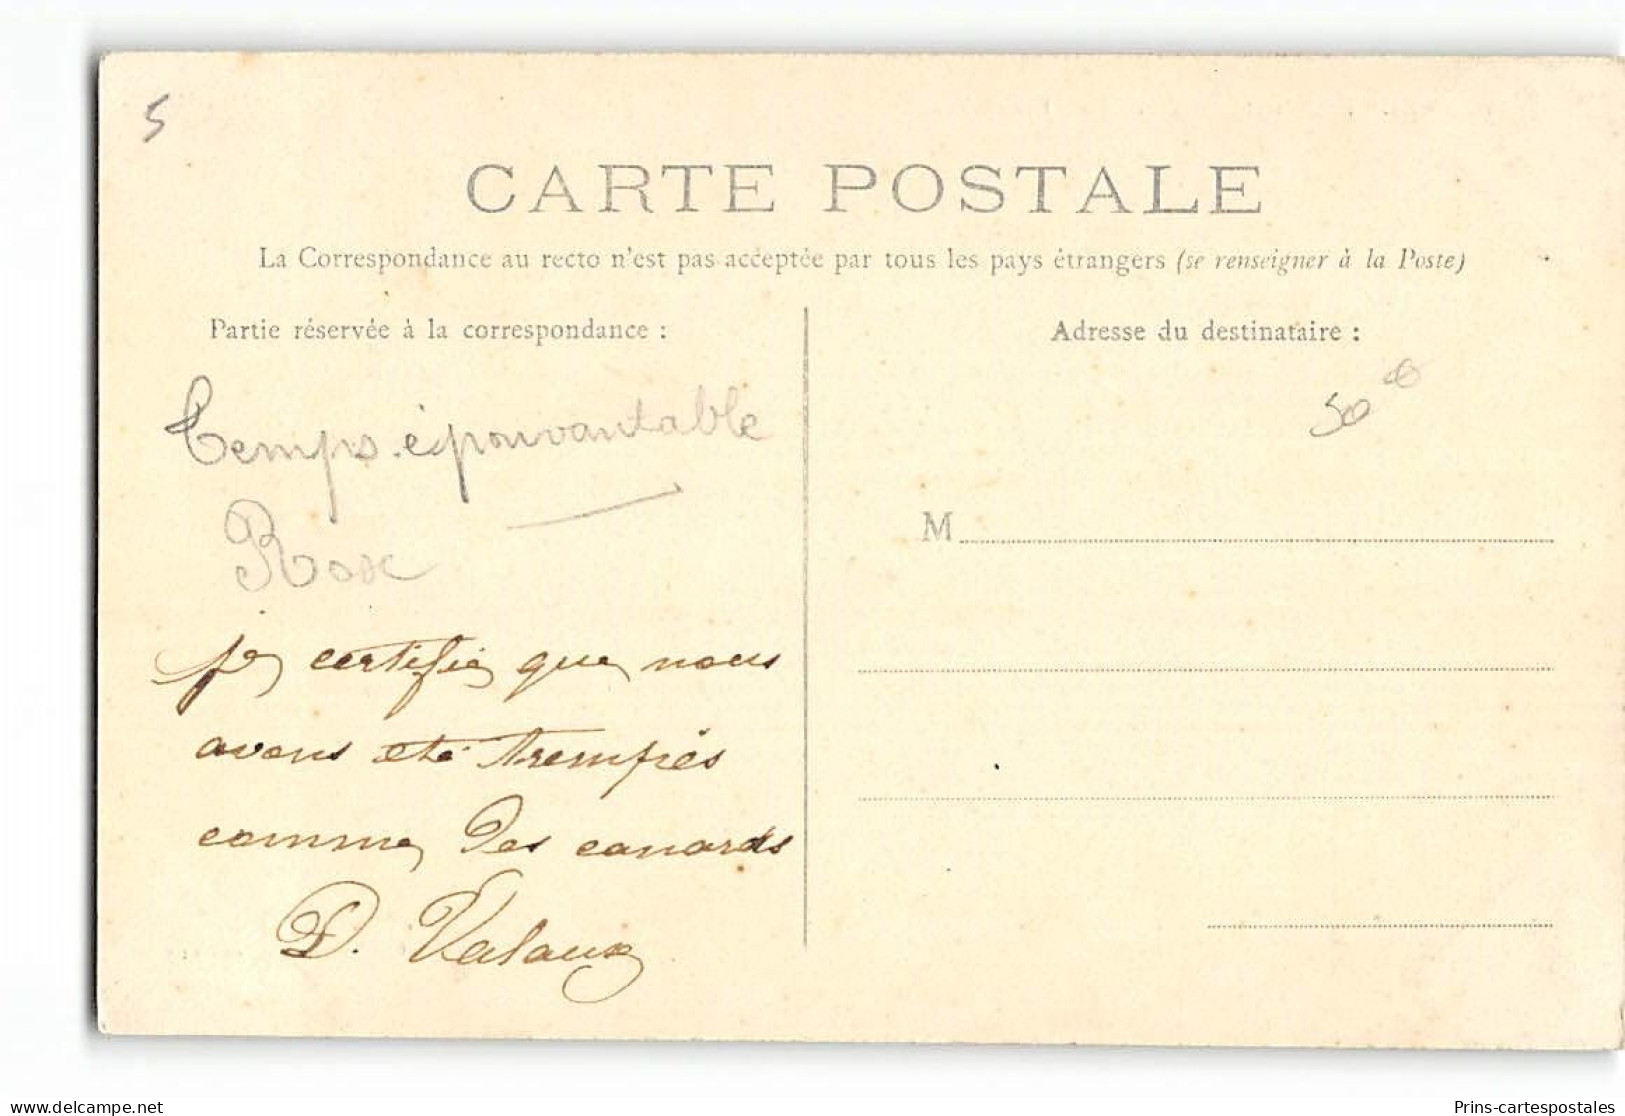 5
CARTE POSTALE
La Correspondance au recto n'est pas acceptée par tous les pays étrangers (se renseigner à la Poste)
Partie réservée à la correspondance :
Temps épouvantable
je certifie que nous
avons été trempés
comme des canards
D. Valaux
Adresse du destinataire :
50
M
www.delcampe.net Prins-cartespostales